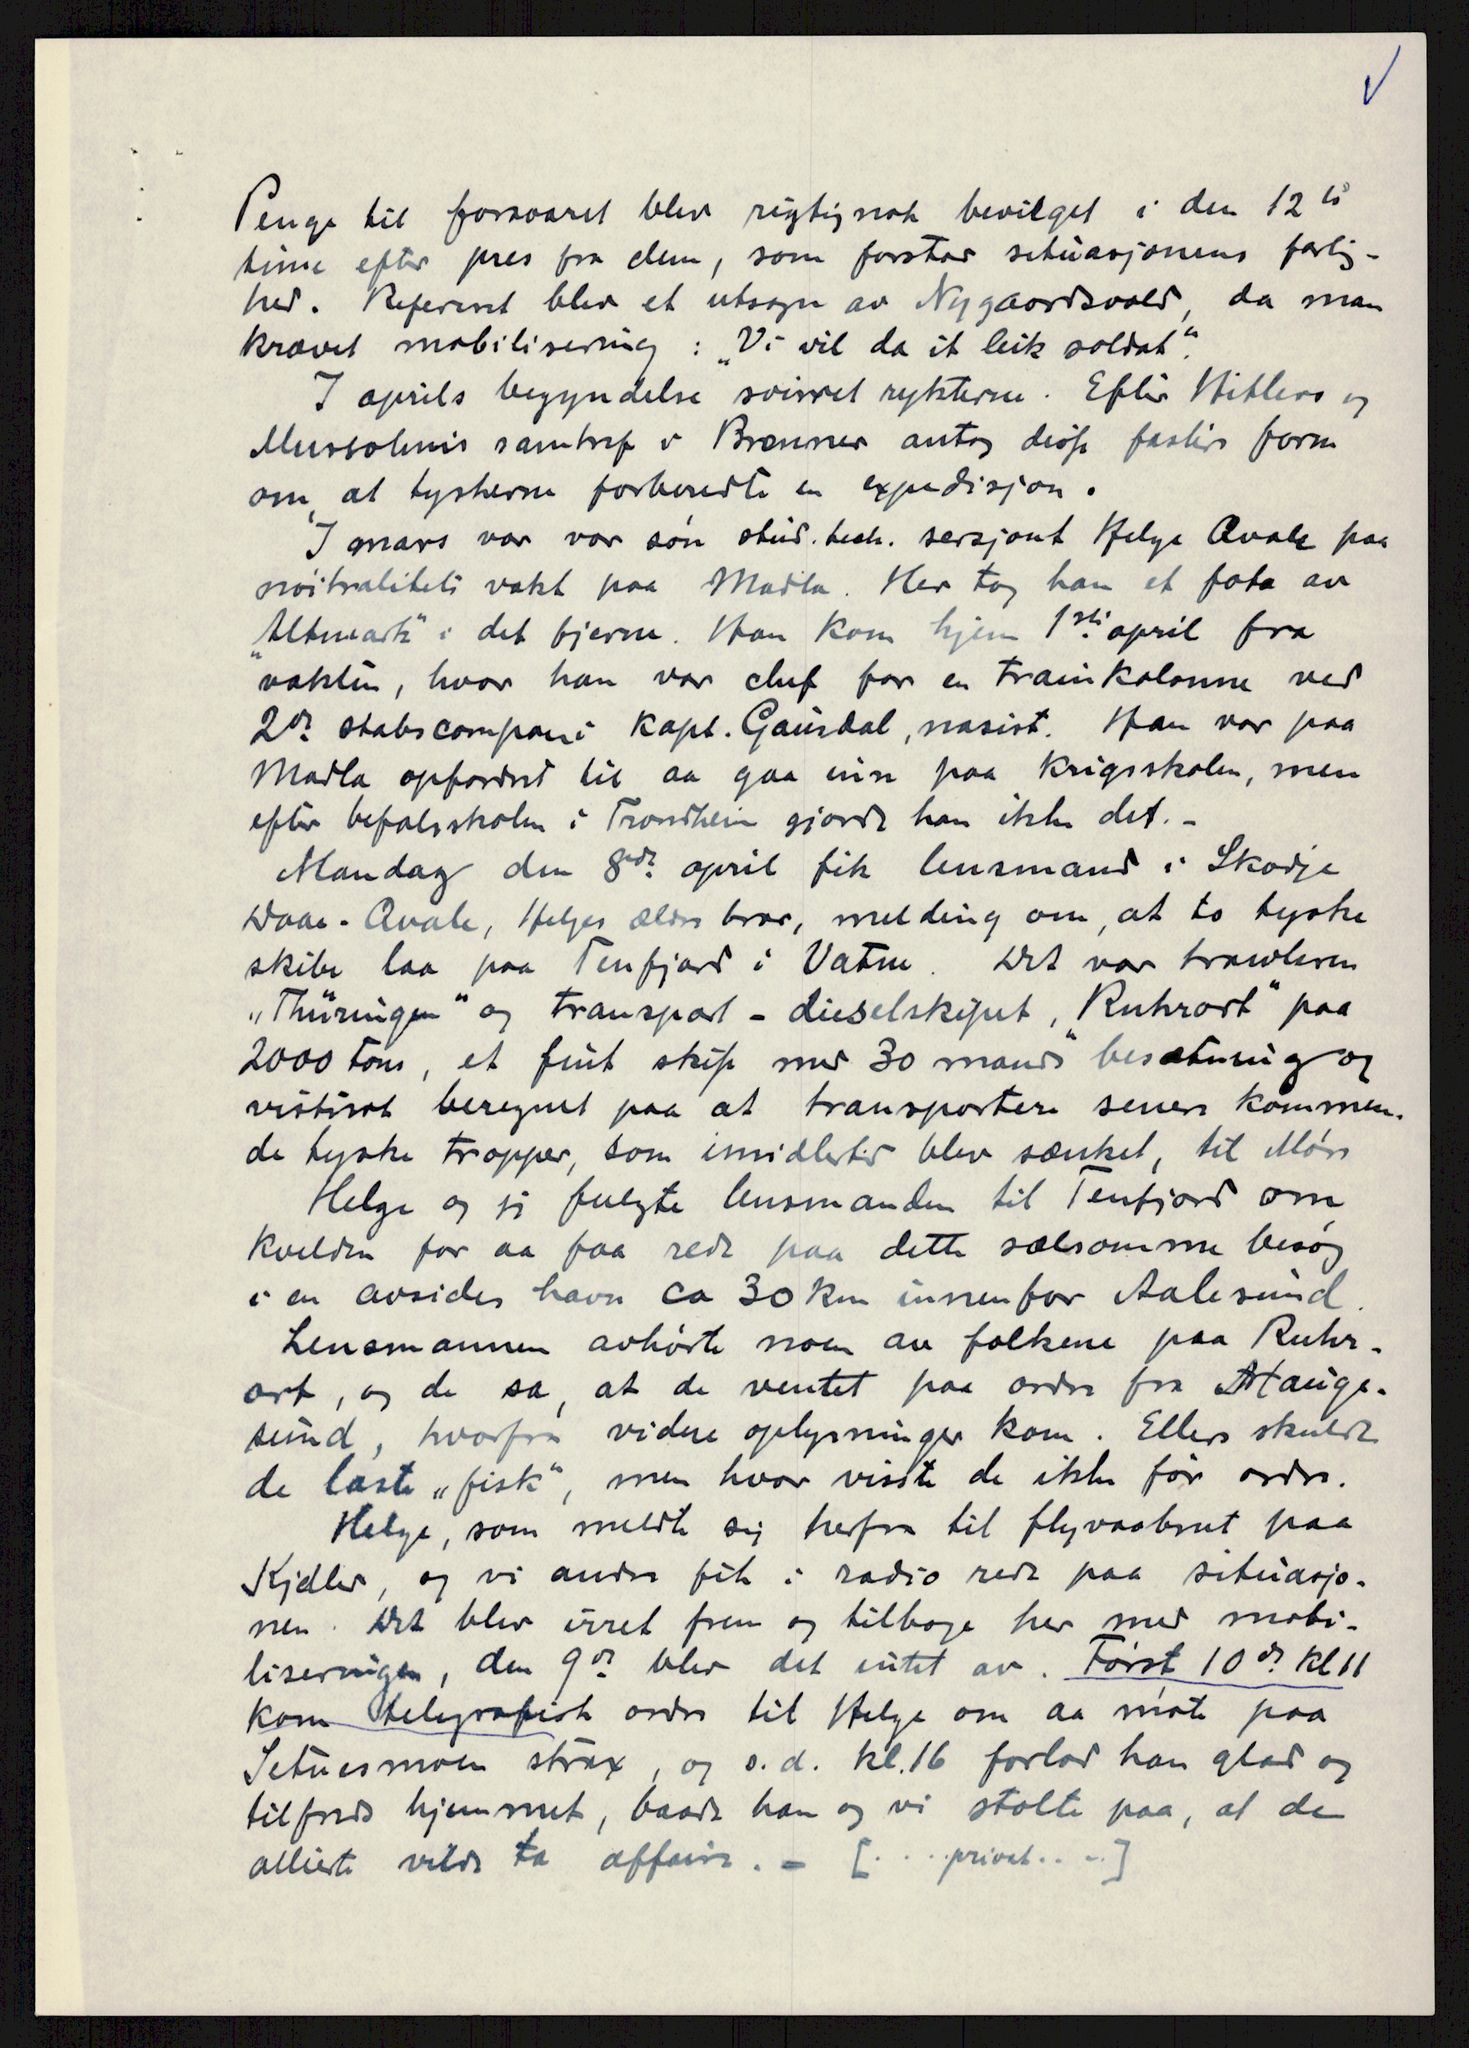 Penge til forsvaret blev rigtignok bevilget i den 12te
time efter pres fra dem, som forstod situasjonens farlig-
hed. Refereret blev et utsagn av Nygaardsvold, da man
krævet mobilisering: „Vi vil da it leik soldat“.
I aprils begyndelse svirret rykterne. Efter Hitlers og
Mussolinis samtref v Brenner antog disse fastere form
om, at tyskerne forberedte en expedisjon.
I mars var vor søn stud. tech. sersjant Helge Qvale paa
nøitralitetsvakt paa Madla. Her tog han et foto av
„Altmark“ i det fjerne. Han kom hjem 1ste april fra
vakten, hvor han var chef for en trainkolonne ved
2de stabscompani kapt. Gausdal, nasist. Han var paa
Madla opfordret til aa gaa inn paa krigsskolen, men
efter befalsskolen i Trondheim gjorde han ikke det. –
Mandag den 8de april fik lensmand i Skodje
Daae-Qvale, Helges ældre bror, melding om, at to tyske
skibe laa paa Tenfjord i Vatne. Det var trawleren
„Thüringen“ og transport-dieselskipet „Ruhrort“ paa
2000 tons, et fint skip med 30 mands besætning og
vistnok beregnet paa at transportere senere kommen-
de tyske tropper, som imidlertid blev sænket, til Møre
Helge og jeg fulgte lensmanden til Tenfjord om
kvelden for aa faa rede paa dette sælsomme besøg
i en avsides havn ca 30 km innenfor Aalesund.
Lensmannen avhørte noen av folkene paa Ruhr-
ort, og de sa, at de ventet paa ordre fra Hauge-
sund, hvorfra videre oplysninger kom. Ellers skulde
de laste „fisk“, men hvor visste de ikke før ordre.
Helge, som meldte sig herfra til flyvaabnet paa
Kjeller, og vi andre fik i radio rede paa situasjo-
nen. Det blev irret frem og tilbage her med mobi-
liseringen, den 9de blev det intet av. Først 10de kl 11
kom telegrafisk ordre til Helge om aa møte paa
Setnesmoen strax, og s.d. kl. 16 forlod han glad og
tilfreds hjemmet, baade han og vi stolte paa, at de
allierte vilde ta affære. – [...privat....]